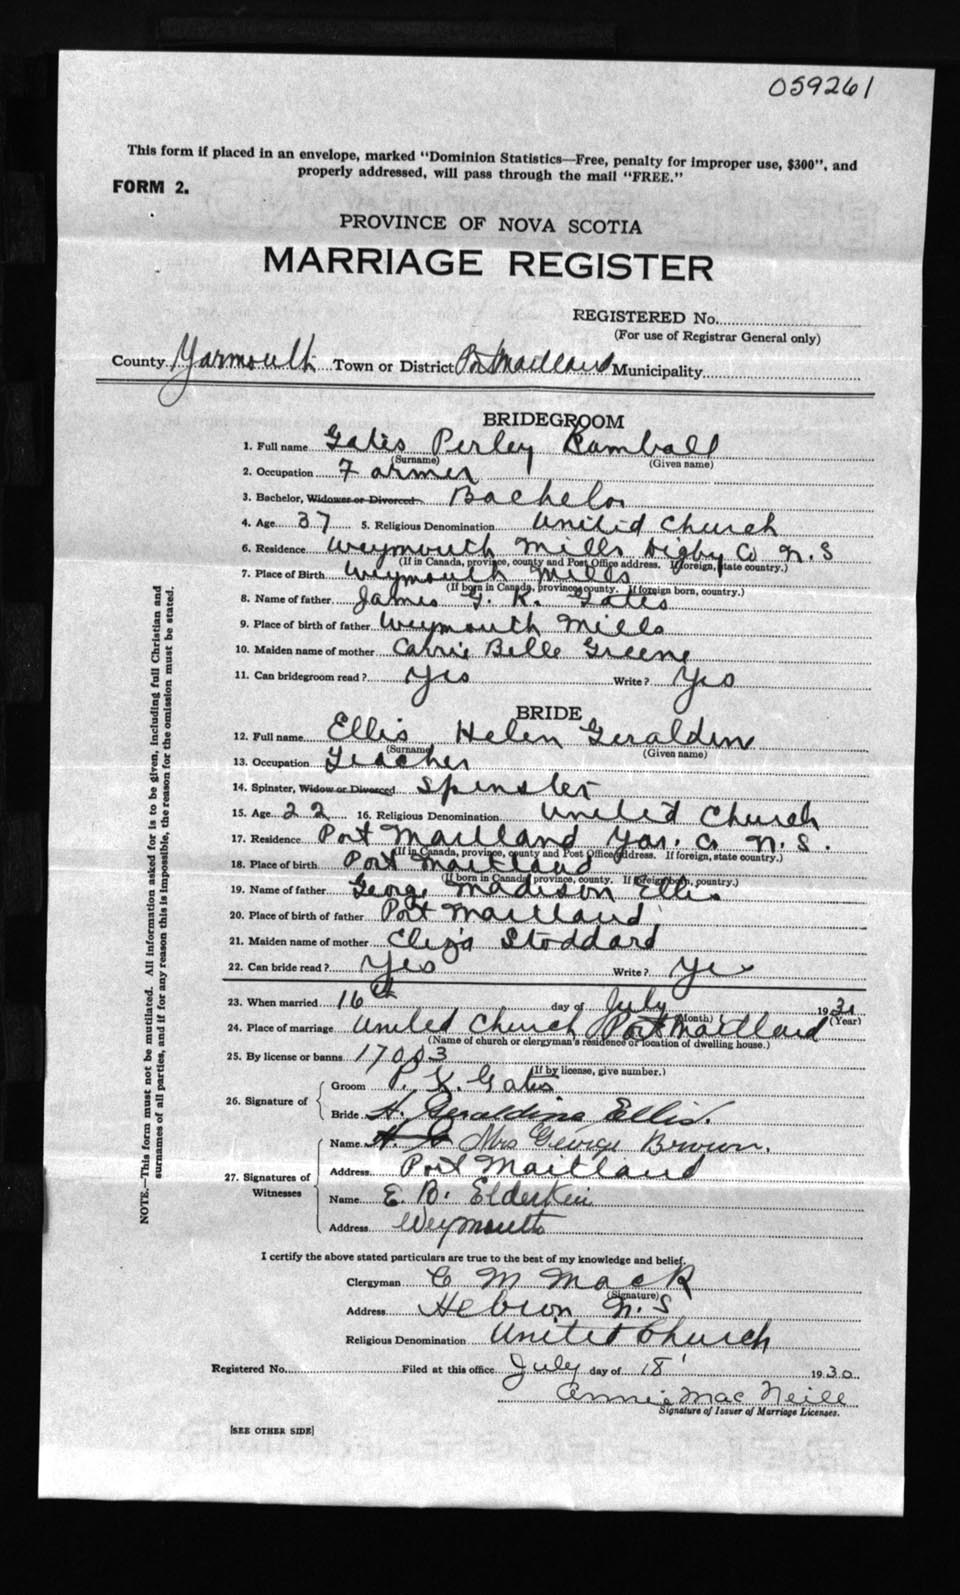 059261
This form if placed in an envelope, marked "Dominion Statistics—Free, penalty for improper use, $300", and
properly addressed, will pass through the mail "FREE."
FORM 2.
PROVINCE OF NOVA SCOTIA
MARRIAGE REGISTER
REGISTERED No.
(For use of Registrar General only)
County Yarmouth Town or District Pt Maitland Municipality
BRIDEGROOM
1. Full name Gates Perley Kemball
(Surname) (Given name)
2. Occupation Farmer
3. Bachelor, Widower or Divorced Bachelor
4. Age 37 5. Religious Denomination United Church
6. Residence Weymouth Mills Digby Co N.S
(If in Canada, province, county and Post Office address. If foreign, state country.)
7. Place of Birth Weymouth Mills
(If born in Canada, province, county. If foreign born, country.)
8. Name of father James G. R. Gates
9. Place of birth of father Weymouth Mills
10. Maiden name of mother Carrie Belle Greene
11. Can bridegroom read? Yes Write? Yes
BRIDE
12. Full name Ellis Helen Geraldin
(Surname) (Given name)
13. Occupation Teacher
14. Spinster, Widow or Divorced Spinster
15. Age 22 16. Religious Denomination United Church
17. Residence Port Maitland Yar. Co N.S.
(If in Canada, province, county and Post Office address. If foreign, state country.)
18. Place of birth Port Maitland
(If born in Canada, province, county. If foreign born, country.)
19. Name of father George Madison Ellis
20. Place of birth of father Port Maitland
21. Maiden name of mother Eliza Stoddard
22. Can bride read? Yes Write? Yes
23. When married 16th day of July 1930
(Month) (Year)
24. Place of marriage United Church Port Maitland
(Name of church or clergyman's residence or location of dwelling house.)
25. By license or banns 17003
(If by license, give number.)
26. Signature of Groom P. K. Gates
Bride H. Geraldine Ellis.
27. Signatures of Witnesses Name Mrs George Brown.
Address Port Maitland
Name E. B. Elderkin
Address Weymouth
I certify the above stated particulars are true to the best of my knowledge and belief.
Clergyman C M Mack
(Signature)
Address Hebron N.S
Religious Denomination United Church
Registered No. Filed at this office July day of 18 1930
Annie MacNeill
Signature of Issuer of Marriage Licenses.
[SEE OTHER SIDE]
NOTE.—This form must not be mutilated. All information asked for is to be given, including full Christian and
surnames of all parties, and if for any reason this is impossible, the reason for the omission must be stated.